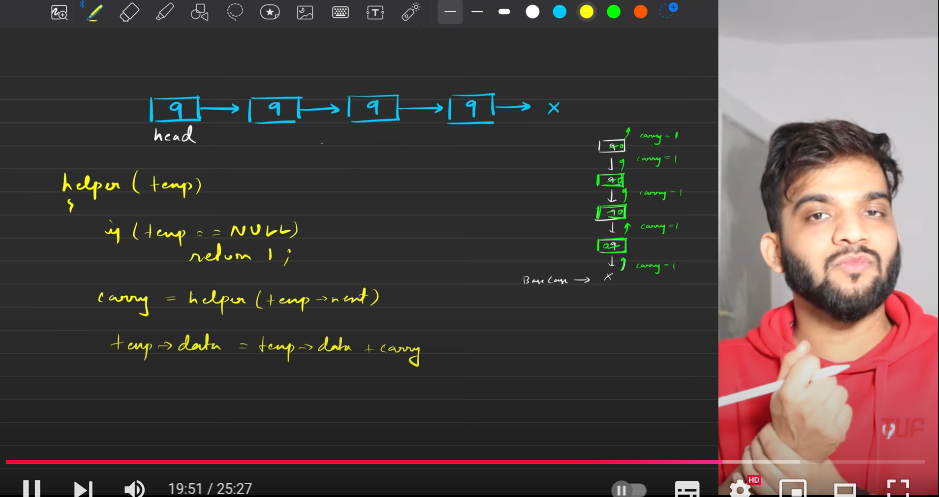 9 9 9 9 x
head
helper ( temp)
{
if (temp == NULL)
return 1 ;
carry = helper (temp→next)
temp→data = temp→data + carry
carry - 1
carry - 1
carry - 1
carry - 1
carry - 1
Base Case → x
TUF
HD
19:51 / 25:27